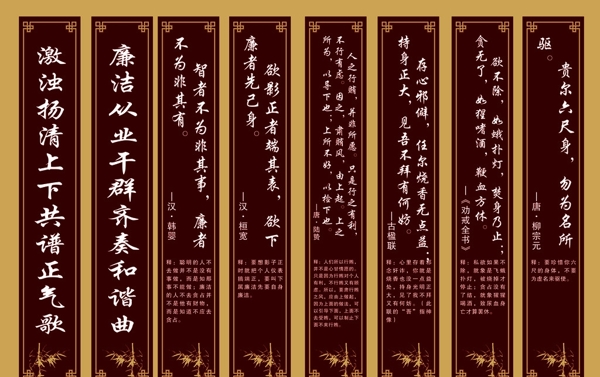 激浊扬清上下共谱正气歌
廉洁从业干群齐奏和谐曲
智者不为非其事，廉者
不为非其有。
—汉·韩婴
释：聪明的人不
去做并不是没有
事做，而是知那
事不能做；廉洁
的人不去贪占并
不是他有财物，
而是知道不应去
贪占。
欲影正者端其表，欲下
廉者先己身。
—汉·桓宽
释：要想影子正
时就把个人仪表
端端正，要叫下
属廉洁先要自身
廉洁。
人之行赇，并非所愿。只是行之有利，
不行有虑。因之，肃赇风，由上起。上之
所为，以导下也；上所不好，以检下也。
—唐·陆贽
存心邪僻，任尔烧香无点益；
持身正大，见吾不拜有何妨。
—古楹联
欲不除，如蛾扑灯，焚身乃止；
贪无了，如猩嗜酒，鞭血方休。
—《劝戒全书》
贵尔六尺身，勿为名所
驱。
—唐·柳宗元
释：要珍惜你六
尺的身体，不要
为虚名来驱使。